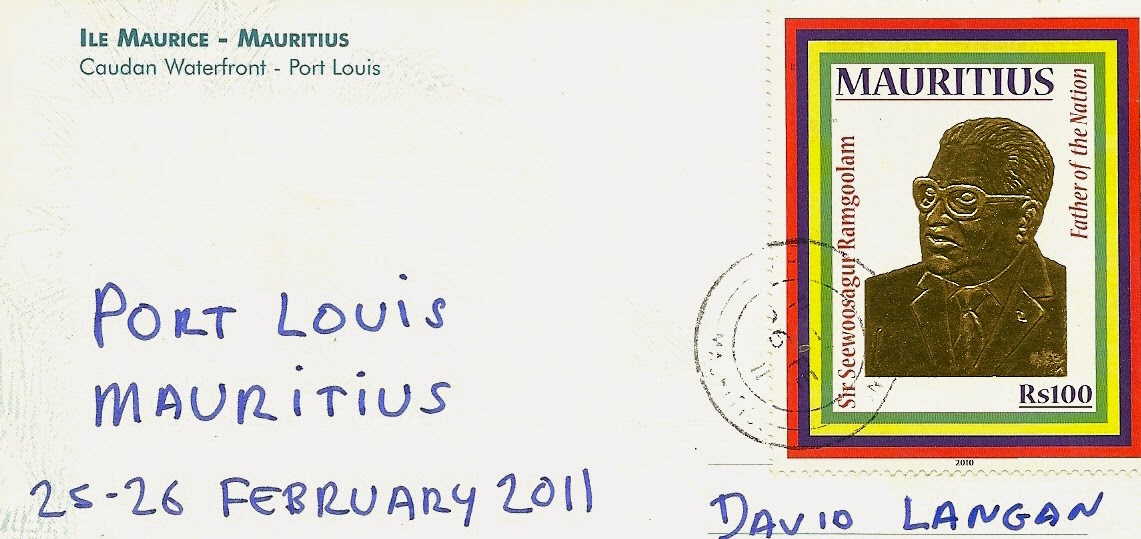 ILE MAURICE - MAURITIUS
Caudan Waterfront - Port Louis
MAURITIUS
Sir Seewoosagur Ramgoolam
Father of the Nation
Rs100
2010
PORT LOUIS
MAURITIUS
25-26 FEBRUARY 2011
DAVID LANGAN